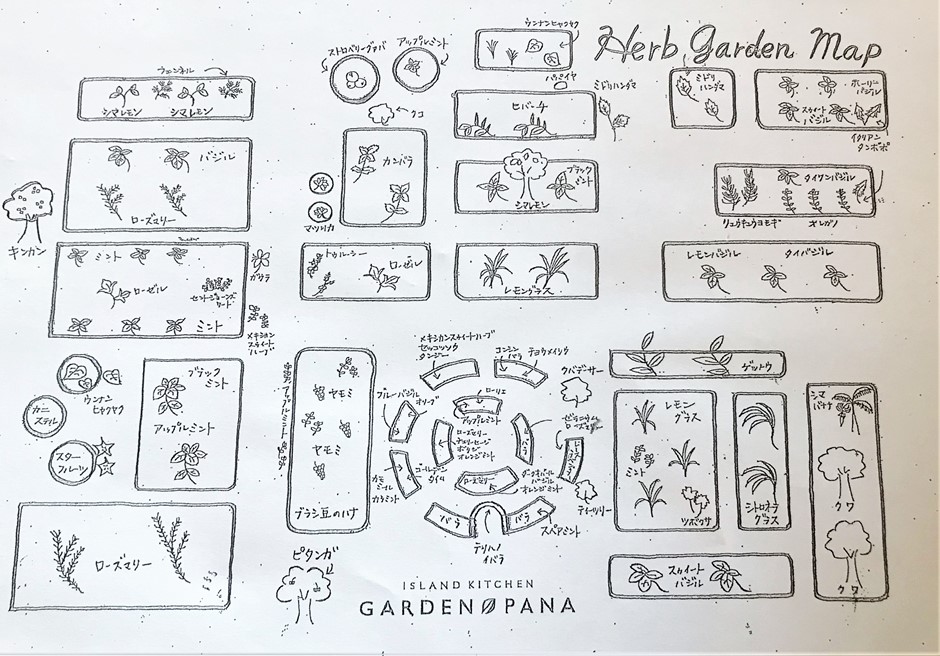 Herb Garden Map
フェンネル
シマレモン
シマレモン
ストロベリーグァバ
アップルミント
ウンナンヒャクヤク
ハリイヤ
ミドリハンダマ
ミドリ
ハンダマ
ホーリー
バジル
スウィート
バジル
イタリアン
タンポポ
クコ
ヒバーチ
バジル
ローズマリー
キンカン
カンバラ
マツリカ
ブラック
ミント
シマレモン
タイワンバジル
リュウキュウヨモギ
オレガノ
ミント
ローゼル
セントジョーンズ
ワート
ミント
ガウラ
メキシカン
スウィート
ハーブ
トゥルーシー
ローゼル
レモングラス
レモンバジル
タイバジル
ウンナン
ヒャクヤク
カニ
ステル
スター
フルーツ
ブラック
ミント
アップルミント
アップルミント
ヤモミ
ヤモミ
ブラジ豆のハナ
メキシカンスウィートハーブ
ゼッコッソウ
タンジー
コンシン
バラ
テヨウメイソウ
クバデサー
ブルーバジル
オリーブ
ローリエ
アップルミント
ローズゼリー
チェリーセージ
ボリジ
オレンジミント
バラ
ローズゼリー
ダークオパール
バジル
オレンジミント
ゴールデン
タイム
カモ
ミール
カラミント
ティーツリー
バラ
バラ
スペアミント
テリハノ
イバラ
ゲットウ
レモン
グラス
ミント
ツボクサ
シトロネラ
グラス
シマ
バナナ
クワ
クワ
スウィート
バジル
ローズマリー
ピタンガ
ISLAND KITCHEN
GARDEN PANA